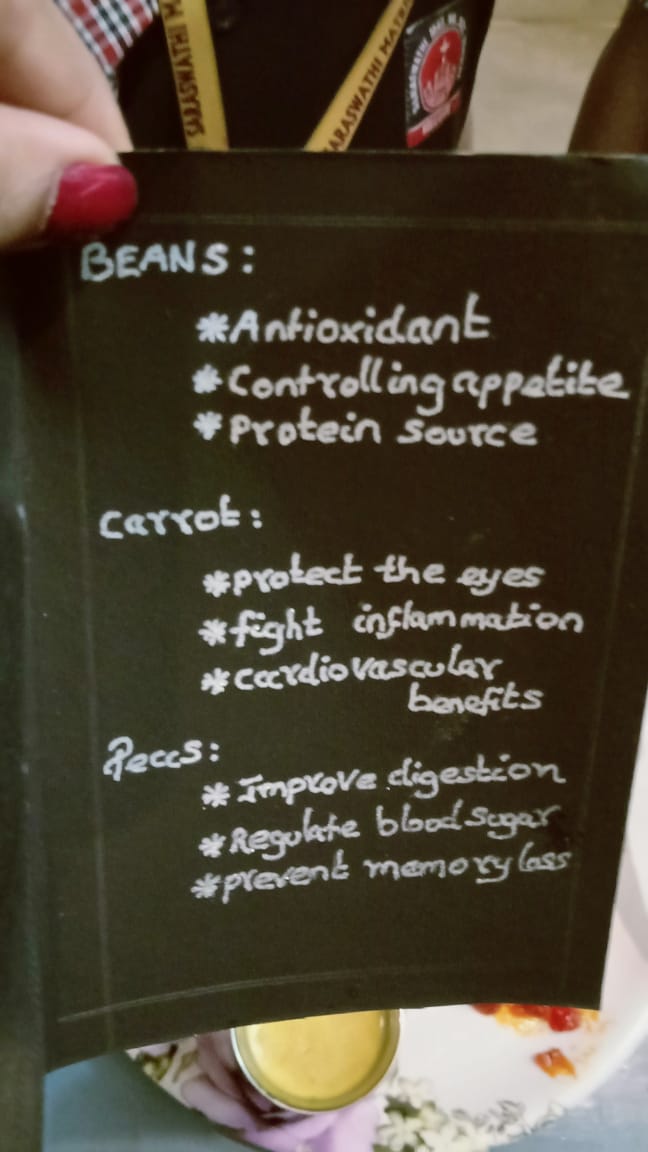 SARASWATHI M
SARASWATHI MATR
BEANS:
*Antioxidant
*Controlling appetite
*Protein source
Carrot:
*protect the eyes
*fight inflammation
*cardiovascular
benefits
Peas:
*Improve digestion
*Regulate blood sugar
*prevent memory loss